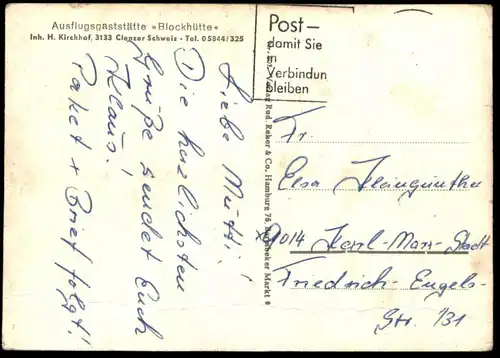 Ausflugsgaststätte »Blockhütte«
Inh. H. Kirchhof, 3133 Clenzer Schweiz - Tel. 05844/325
Post–
damit Sie
in
Verbindun
bleiben
Liebe Mutti!
Die herzlichsten
Grüße sendet Euch
Klaus!
Paket + Brief folgt!
Verlag Rud. Reher & Co., Hamburg 76, Barmbeker Markt 9
Fr.
Elsa Kleingünther
9014 Karl-Marx-Stadt
Friedrich-Engels-
Str. 131